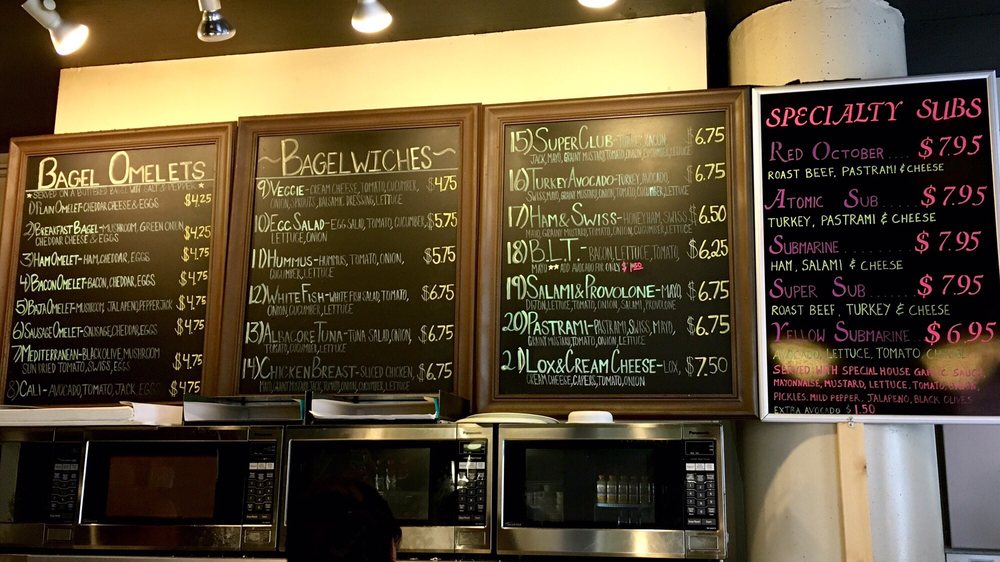 BAGEL OMELETS
★SERVED ON A BUTTERED BAGEL WITH SALT & PEPPER★
1) PLAIN OMELET-CHEDDAR CHEESE & EGGS $4.25
2) BREAKFAST BAGEL-MUSHROOM, GREEN ONION, $4.25
CHEDDAR CHEESE & EGGS
3) HAM OMELET-HAM, CHEDDAR, EGGS $4.75
4) BACON OMELET-BACON, CHEDDAR, EGGS $4.75
5) BAJA OMELET-MUSHROOM, JALAPENO, PEPPERJACK $4.75
6) SAUSAGE OMELET-SAUSAGE, CHEDDAR, EGGS $4.75
7) MEDITERRANEAN-BLACK OLIVE, MUSHROOM $4.75
SUN DRIED TOMATO, SWISS, EGGS
8) CALI-AVOCADO, TOMATO, JACK, EGGS $4.75
~BAGELWICHES~
9) VEGGIE-CREAM CHEESE, TOMATO, CUCUMBER, $4.75
ONION, SPROUTS, BALSAMIC DRESSING, LETTUCE
10) EGG SALAD-EGG SALAD, TOMATO, CUCUMBER, $5.75
LETTUCE, ONION
11) HUMMUS-HUMMUS, TOMATO, ONION, $5.75
CUCUMBER, LETTUCE
12) WHITE FISH-WHITE FISH SALAD, TOMATO, $6.75
ONION, CUCUMBER, LETTUCE
13) ALBACORE TUNA-TUNA SALAD, ONION, $6.75
TOMATO, CUCUMBER, LETTUCE
14) CHICKEN BREAST-SLICED CHICKEN, $6.75
MAYO, MUSTARD, JACK, TOMATO, ONION, CUCUMBER, LETTUCE
15) SUPER CLUB-TURKEY, BACON $6.75
JACK, MAYO, GRAINY MUSTARD, TOMATO, ONION, CUCUMBER, LETTUCE
16) TURKEY AVOCADO-TURKEY, AVOCADO, $6.75
SWISS, MAYO, GRAINY MUSTARD, TOMATO, ONION, CUCUMBER, LETTUCE
17) HAM & SWISS-HONEY HAM, SWISS $6.50
MAYO, GRAINY MUSTARD, TOMATO, ONION, CUCUMBER, LETTUCE
18) B.L.T.-BACON, LETTUCE, TOMATO, $6.25
MAYO ★★ADD AVOCADO FOR ONLY
19) SALAMI & PROVOLONE-MAYO, $6.75
DIJON, LETTUCE, TOMATO, ONION, SALAMI, PROVOLONE
20) PASTRAMI-PASTRAMI, SWISS, MAYO, $6.75
DIJON, TOMATO, ONION, CUCUMBER, LETTUCE
21) LOX & CREAM CHEESE-LOX, $7.50
CREAM CHEESE, CAPERS, TOMATO, ONION
SPECIALTY SUBS
RED OCTOBER .... $7.95
ROAST BEEF, PASTRAMI & CHEESE
ATOMIC SUB ..... $7.95
TURKEY, PASTRAMI & CHEESE
SUBMARINE ...... $7.95
HAM, SALAMI & CHEESE
SUPER SUB ...... $7.95
ROAST BEEF, TURKEY & CHEESE
YELLOW SUBMARINE $6.95
AVOCADO, LETTUCE, TOMATO, CHEESE
SERVED WITH SPECIAL HOUSE GARLIC SAUCE,
MAYONNAISE, MUSTARD, LETTUCE, TOMATO, ONION,
PICKLES, MILD PEPPER, JALAPENO, BLACK OLIVES
EXTRA AVOCADO $1.50
Panasonic
Panasonic
Panasonic